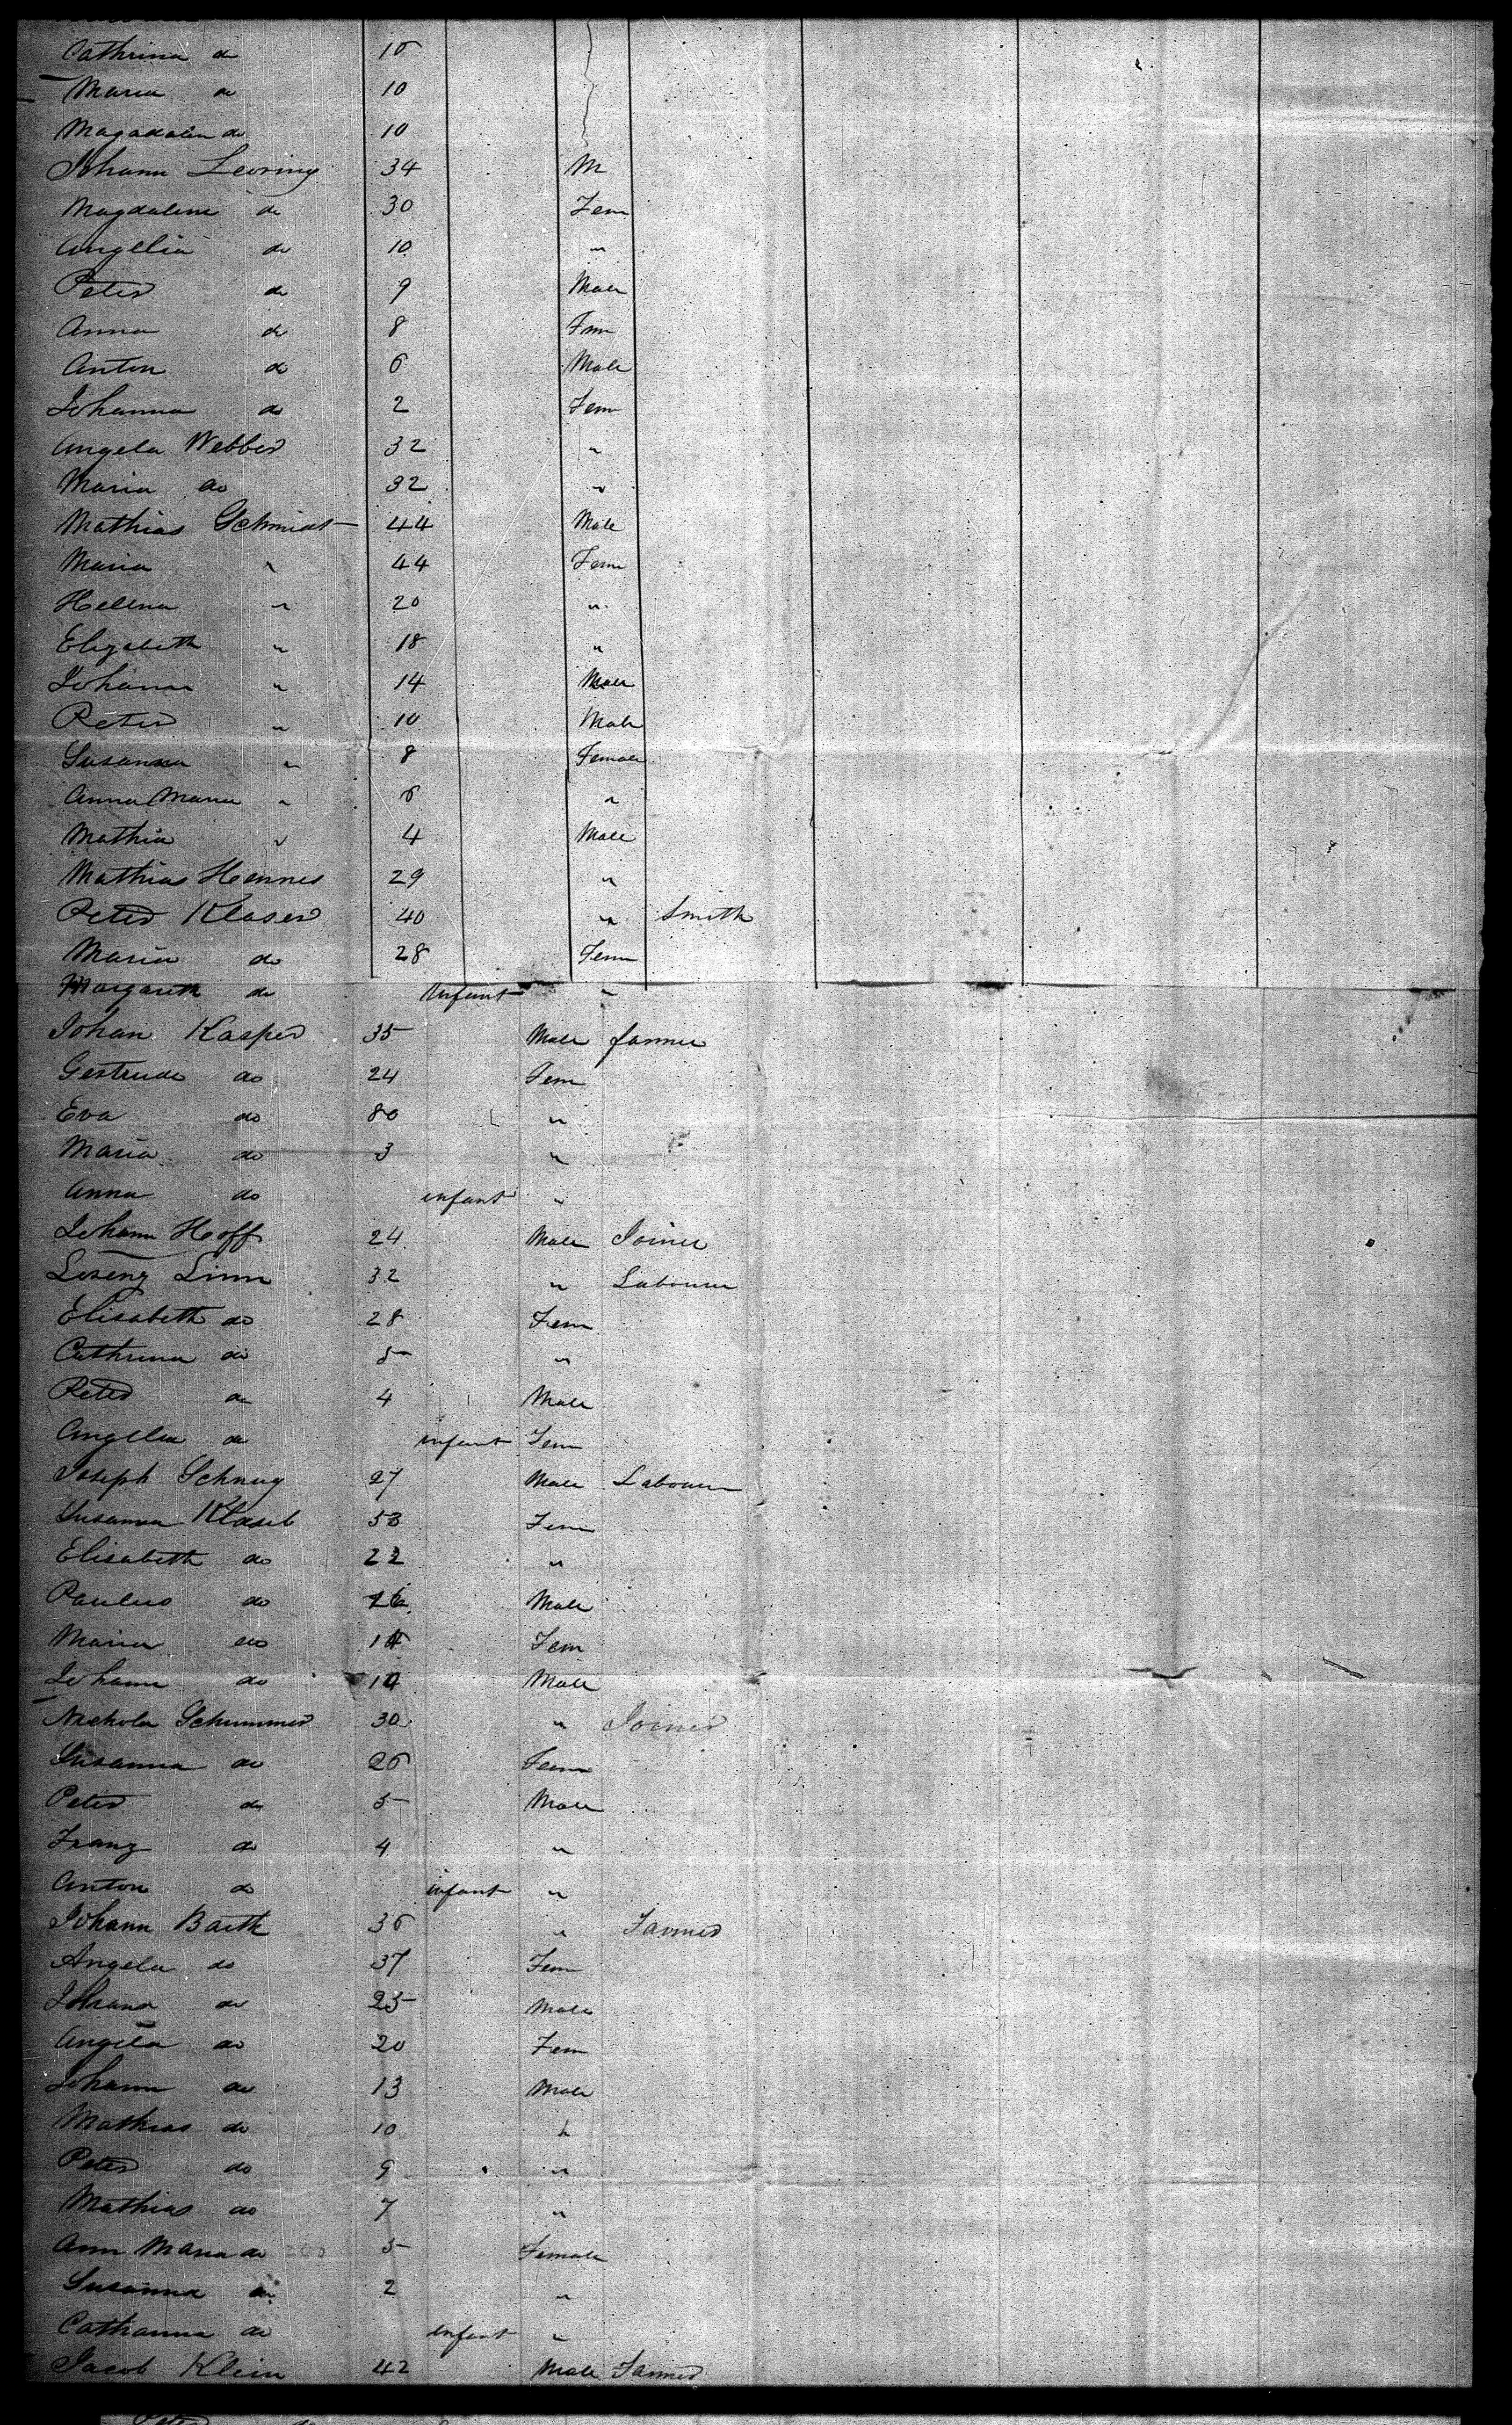 Cathrina do 16
Maria do 10
Magadalin do 10
Johann Leoring 34 M
Magdalene do 30 Fem
Angelia do 10 "
Peter do 9 Male
Anna do 8 Fem
Anton do 6 Male
Johanna do 2 Fem
Angela Webber 32 "
Maria do 32 "
Mathias Schmidt 44 Male
Maria " 44 Fem
Helena " 20 "
Elizabeth " 18 "
Johann " 14 Male
Peter " 10 Male
Susanna " 8 Female
Anna Maria " 6 "
Mathia " 4 Male
Mathias Hennes 29 "
Peter Klaser 40 " Smith
Maria do 28 Fem
Margareth do Infant "
Johan Kasper 35 Male farmer
Gertrude do 24 Fem
Eva do 80 "
Maria do 3 "
Anna do infant "
Johann Hoff 24 Male Joiner
Lorenz Linn 32 " Labourer
Elisabeth do 28 Fem
Cathrina do 5 "
Peter do 4 Male
Angelia do infant Fem
Joseph Schnug 27 Male Labourer
Susanna 53 Fem
Elisabeth do 22 "
Paulus do 16 Male
Maria do Fem
Johann do Male
Nickola Schummer 30 " Joiner
Susanna do 26 Fem
Peter do 5 Male
Franz do 4 "
Anton do infant "
Johann Barth 36 " Farmer
Angela do 37 Fem
do 25 Male
Angela do 20 Fem
Johann do 13 Male
Mathias do 10 "
Peter do 9 "
Mathias do 7 "
Ann Maria do 5 Female
Susanna do 2 "
Catharina do infant "
Jacob Klein 42 Male Farmer